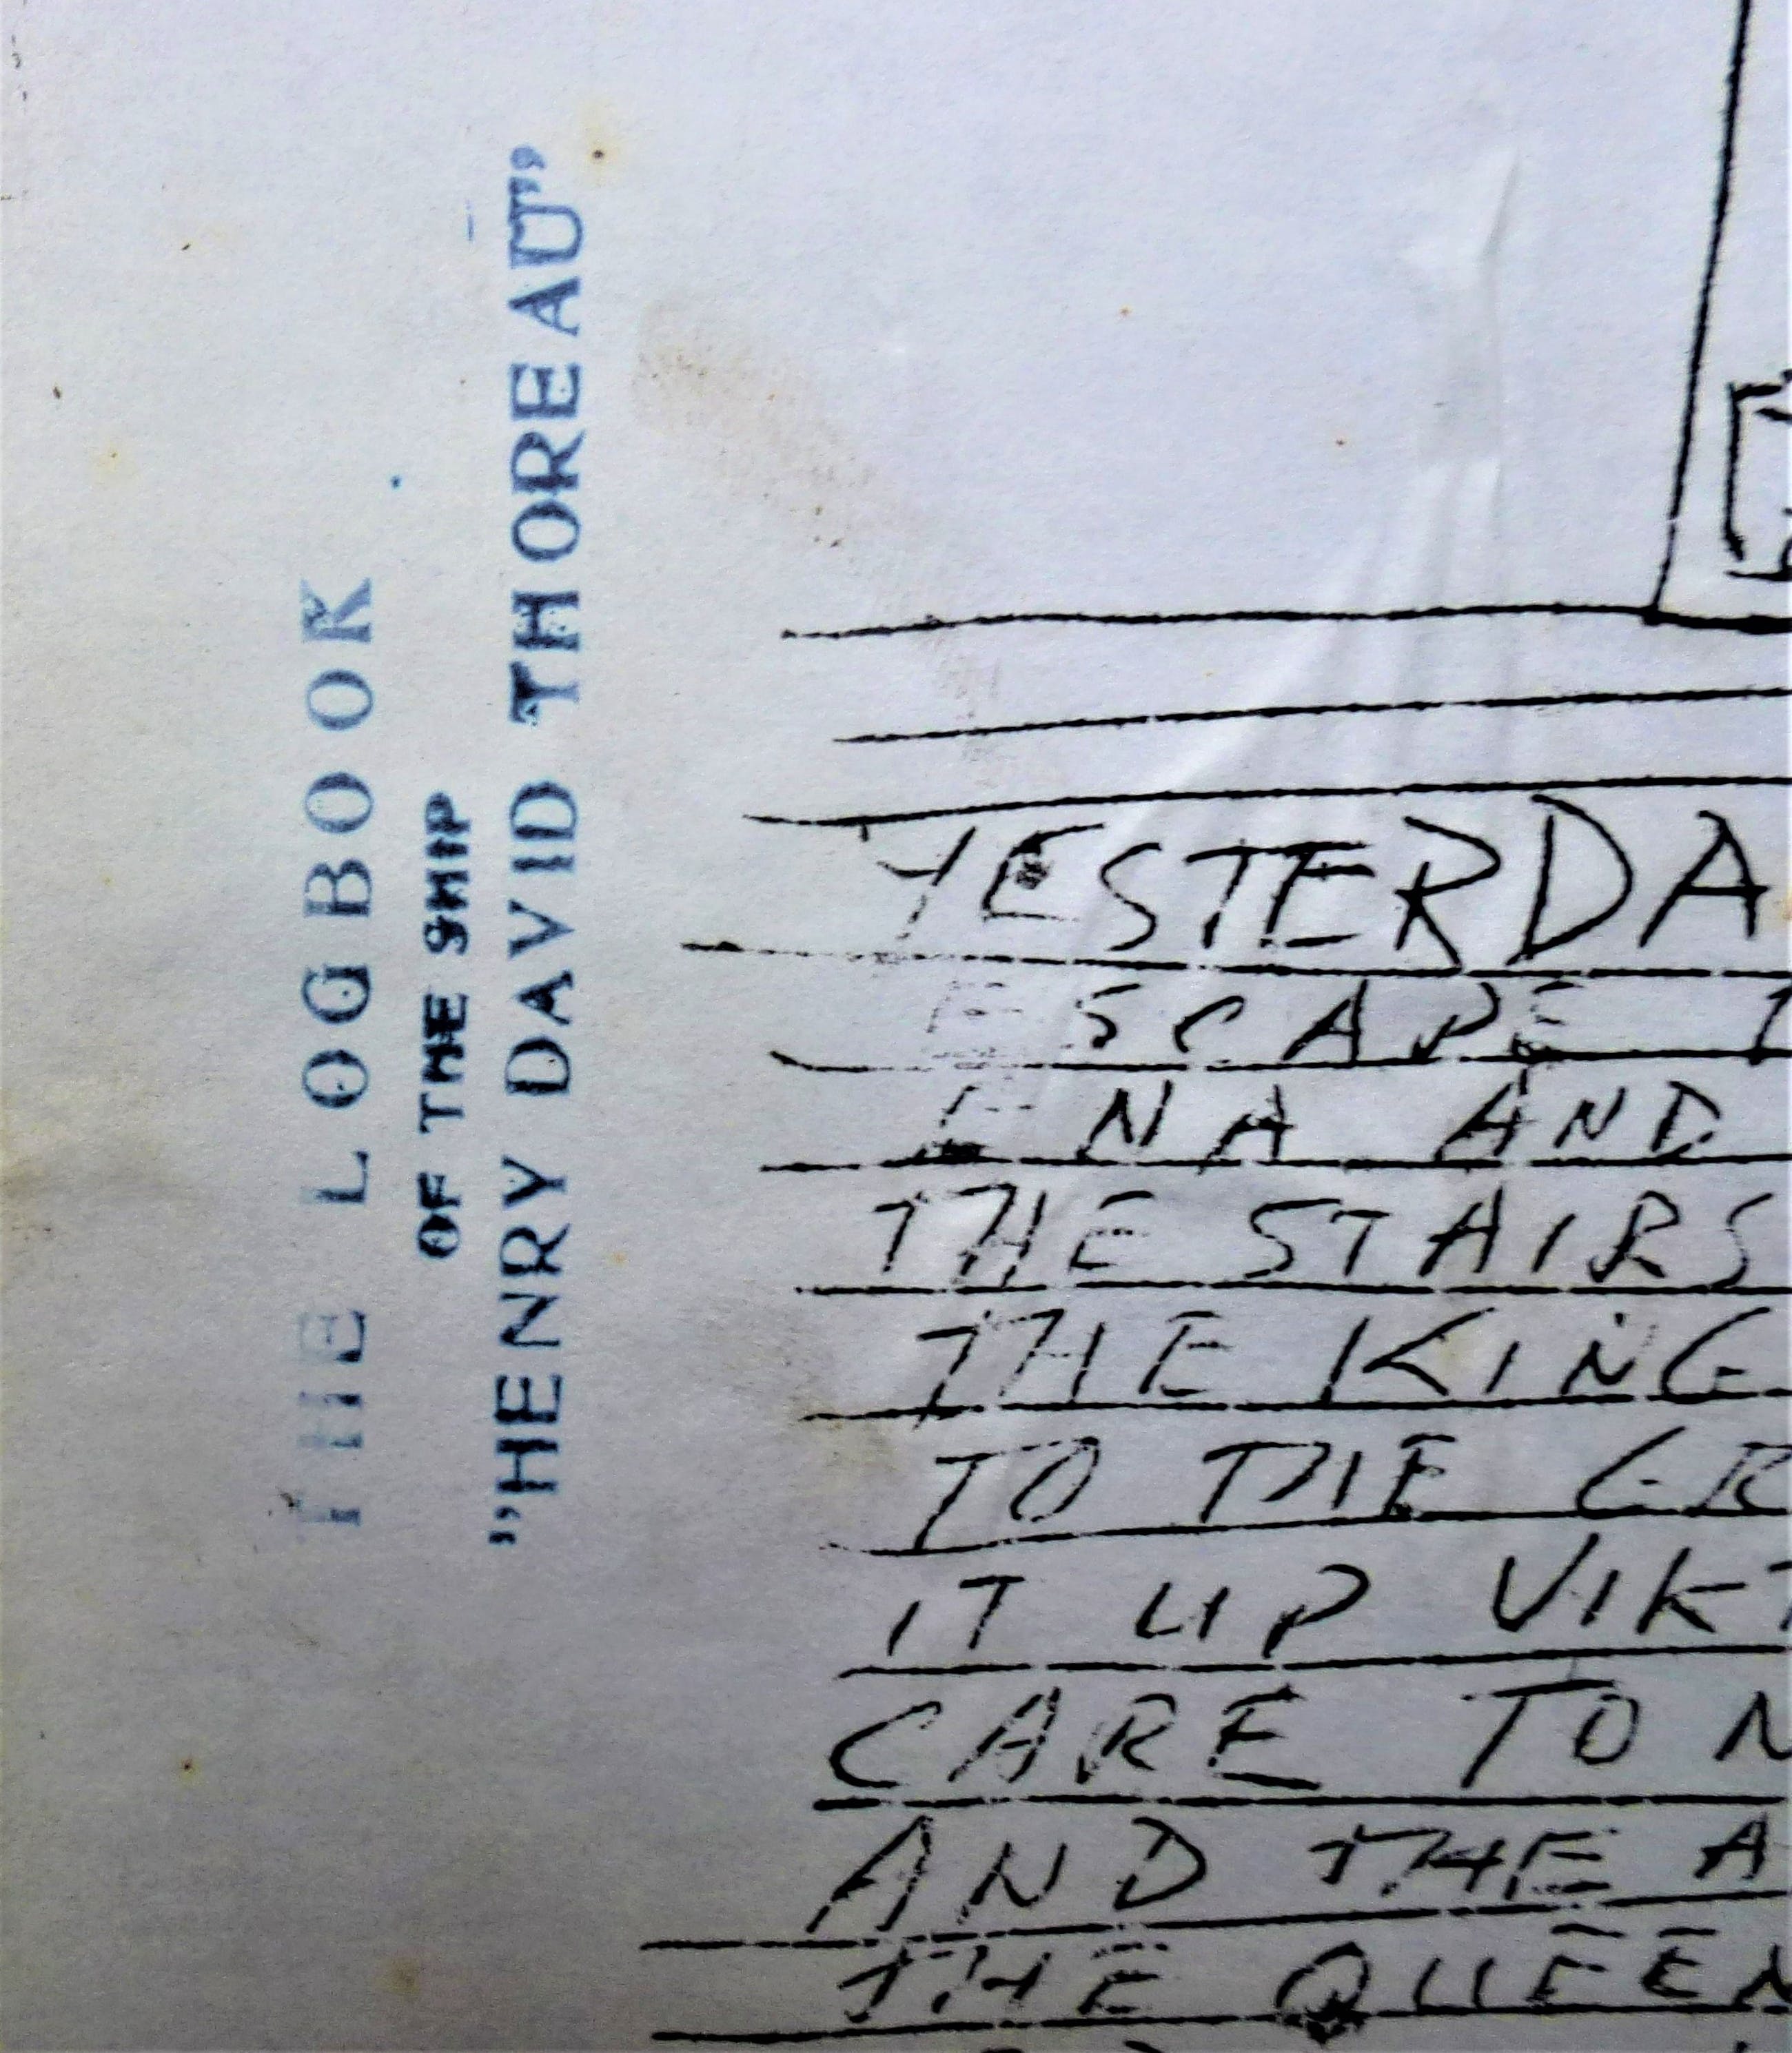 THE LOGBOOK
OF THE SHIP
"HENRY DAVID THOREAU"
YESTERDA
ESCAPE
ENA AND
THE STAIRS
THE KING
TO THE GR
IT UP VIKT
CARE TO N
AND THE A
THE QUEEN